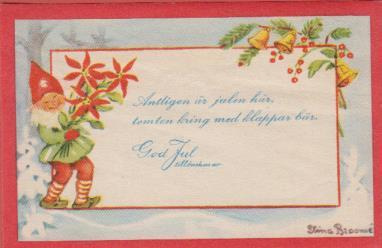 Äntligen är julen här,
tomten kring med klappar bär.
God Jul
tillönskar
Stina Broomé